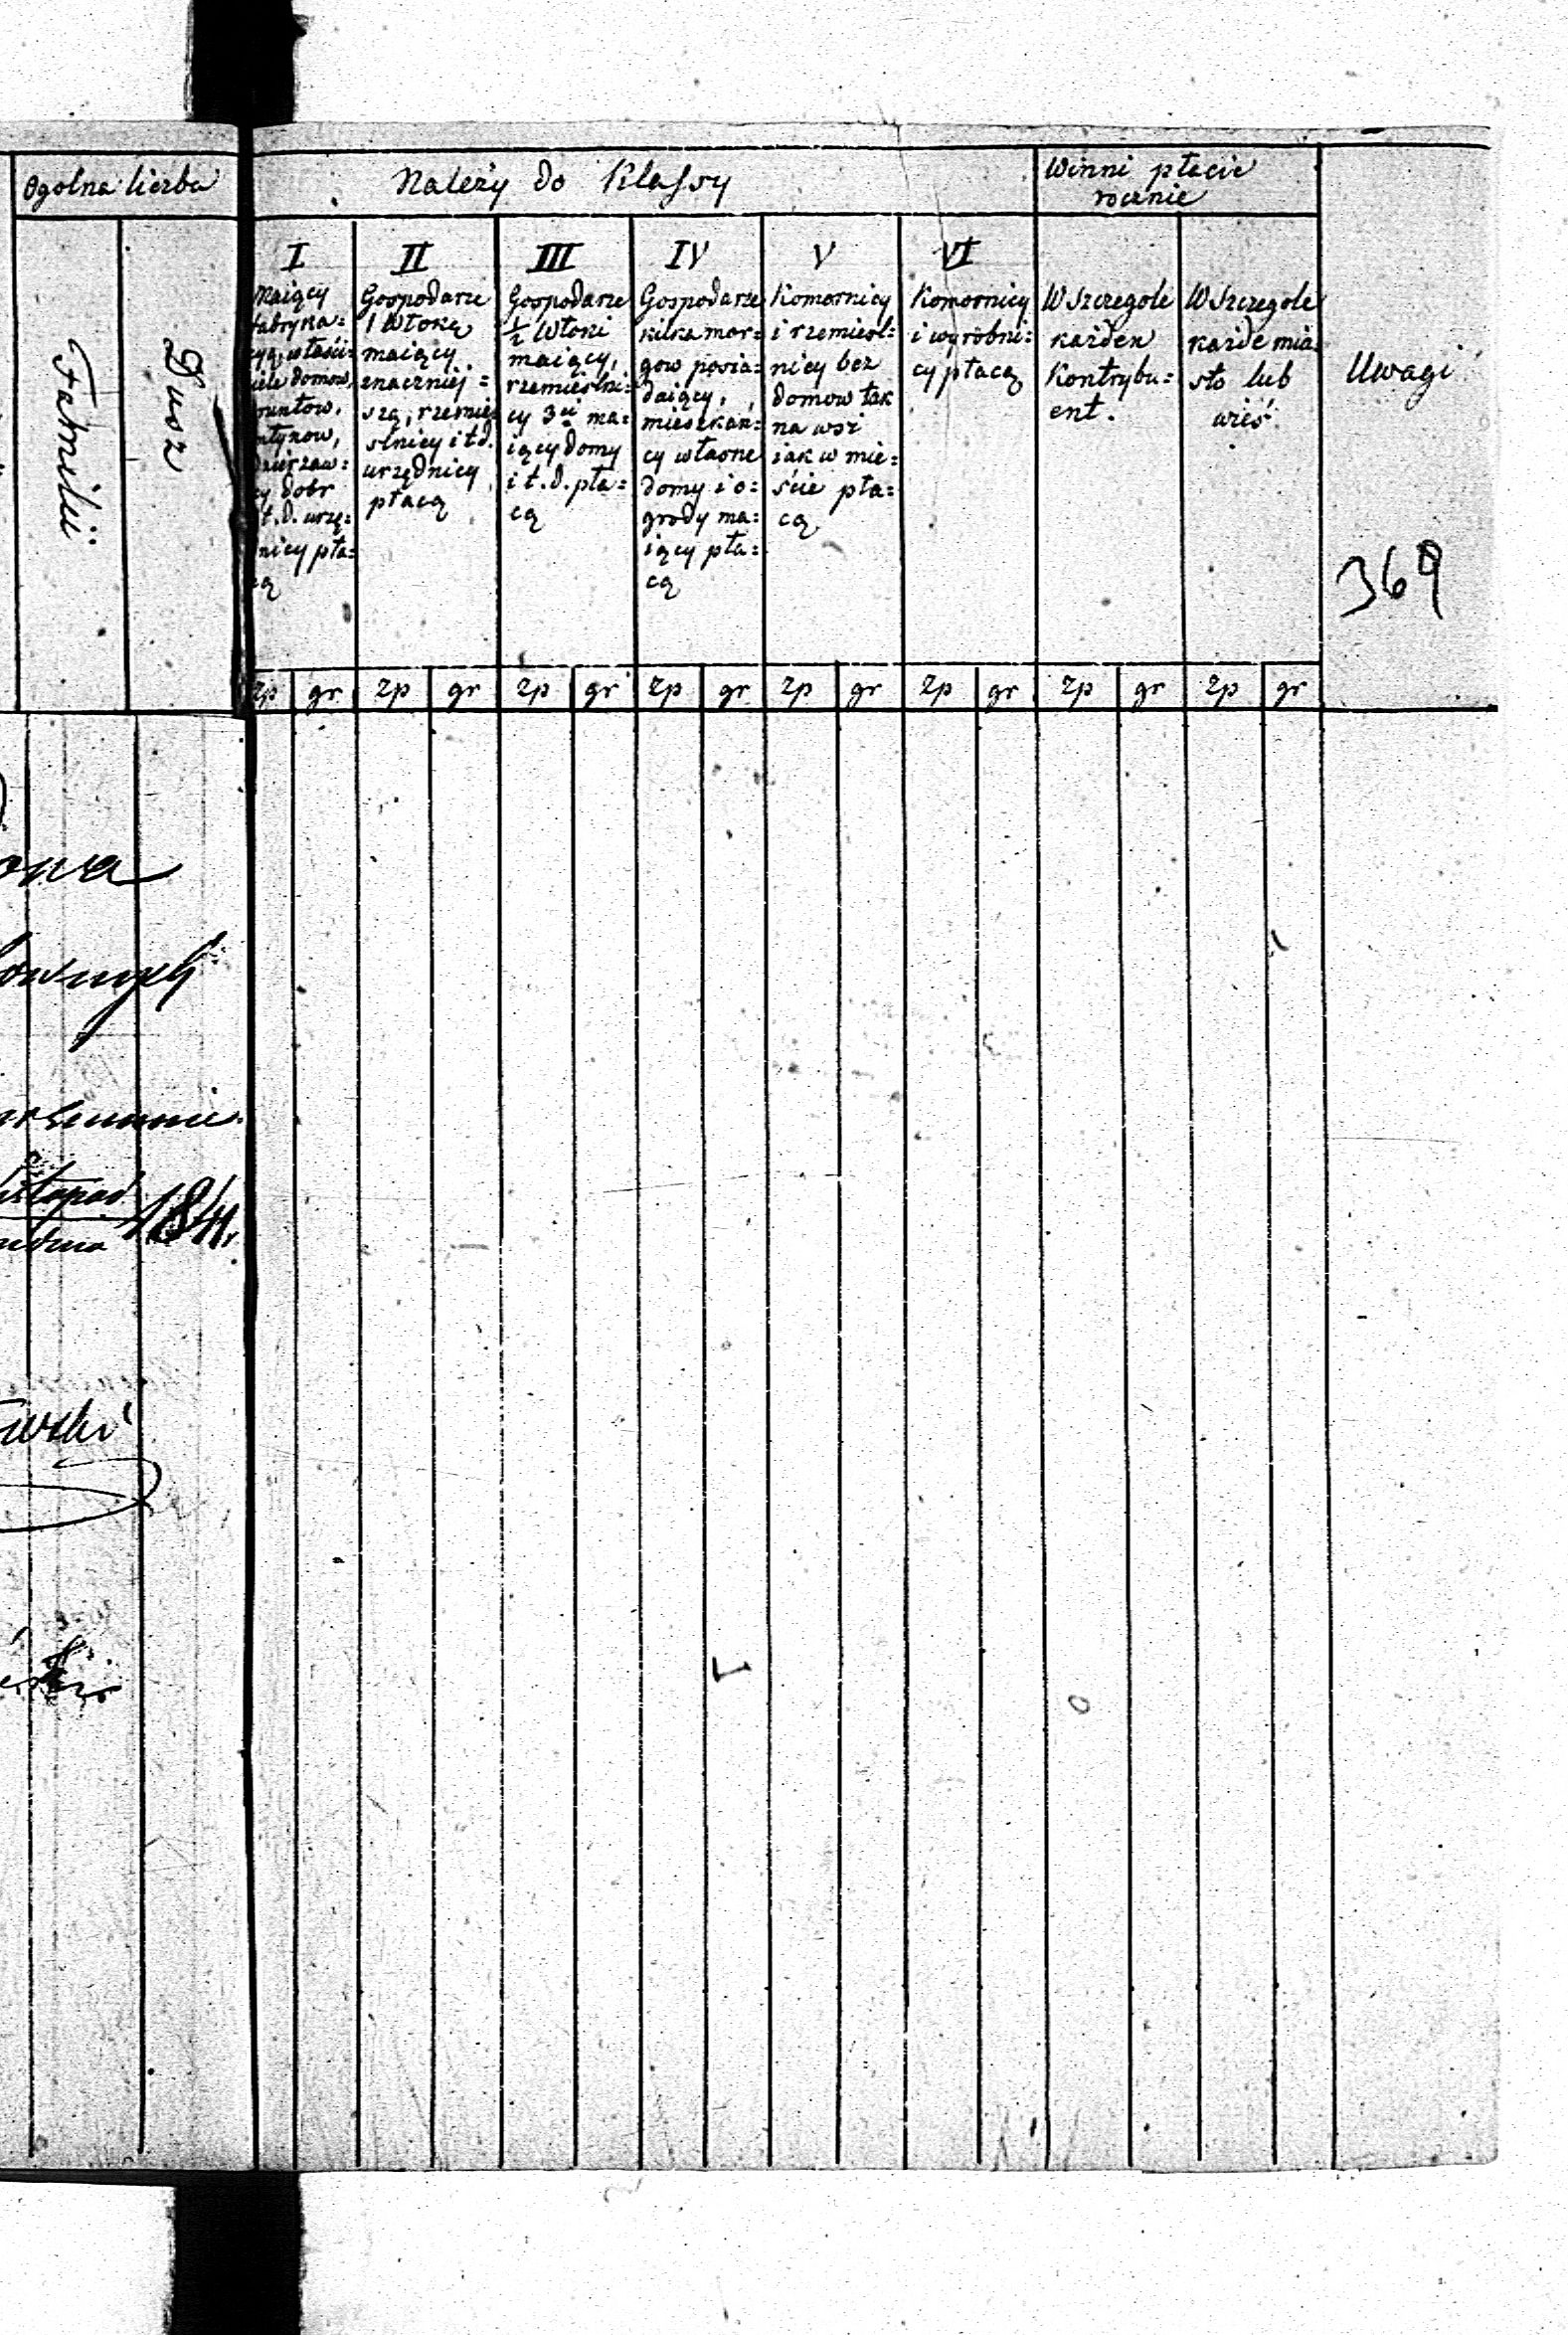 Ogolna liczba
Familii
Dusz
Należy do Klassy
Winni płacić
rocznie
I
Maiący
fabryka=
domow,
dobr
t. d. urzę=
nicy pła=
cą
II
Gospodarze
1 Włokę
maiący
znaczniej=
szą, rzemie=
slnicy i t d.
urzędnicy
płacą
III
Gospodarze
1/2 Włoki
maiący,
rzemieślni=
cy 3ei ma=
iący domy
i t. d. pła=
cą
IV
Gospodarze
kilka mor=
gow posia=
daiący,
mieszkań=
cy własne
domy i o=
grody ma=
iący pła=
cą
V
Komornicy
i rzemieśl=
nicy bez
domow tak
na wsi
iak w mie=
ście pła=
cą
VI
Komornicy
i wyrobni=
cy płacą
W Szczegole
każden
Kontrybu=
ent.
W Szczegole
każde mia=
sto lub
wieś
Uwagi
369
zp gr zp gr zp gr zp gr zp gr zp gr zp gr zp gr
1841.